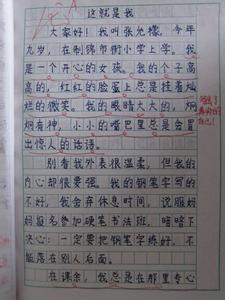 这就是我
大家好！我叫张允檬。今年
九岁，在制锦市街小学上学。我
是一个开心的女孩。我的个子高
高的，红红的脸蛋上总是挂着灿
烂的微笑。我的眼睛大大的，炯
炯有神，小小的嘴巴里总是会冒
出惊人的话语。
别看我外表很温柔，但我的
内心却很要强。我的钢笔字写的
不好，我会弃休息时间，说服妈
妈报名参加硬笔书法班，暗暗下
决心：一定要把钢笔字练好，不
能落在别人后面。
在课余，我总是在那里专心